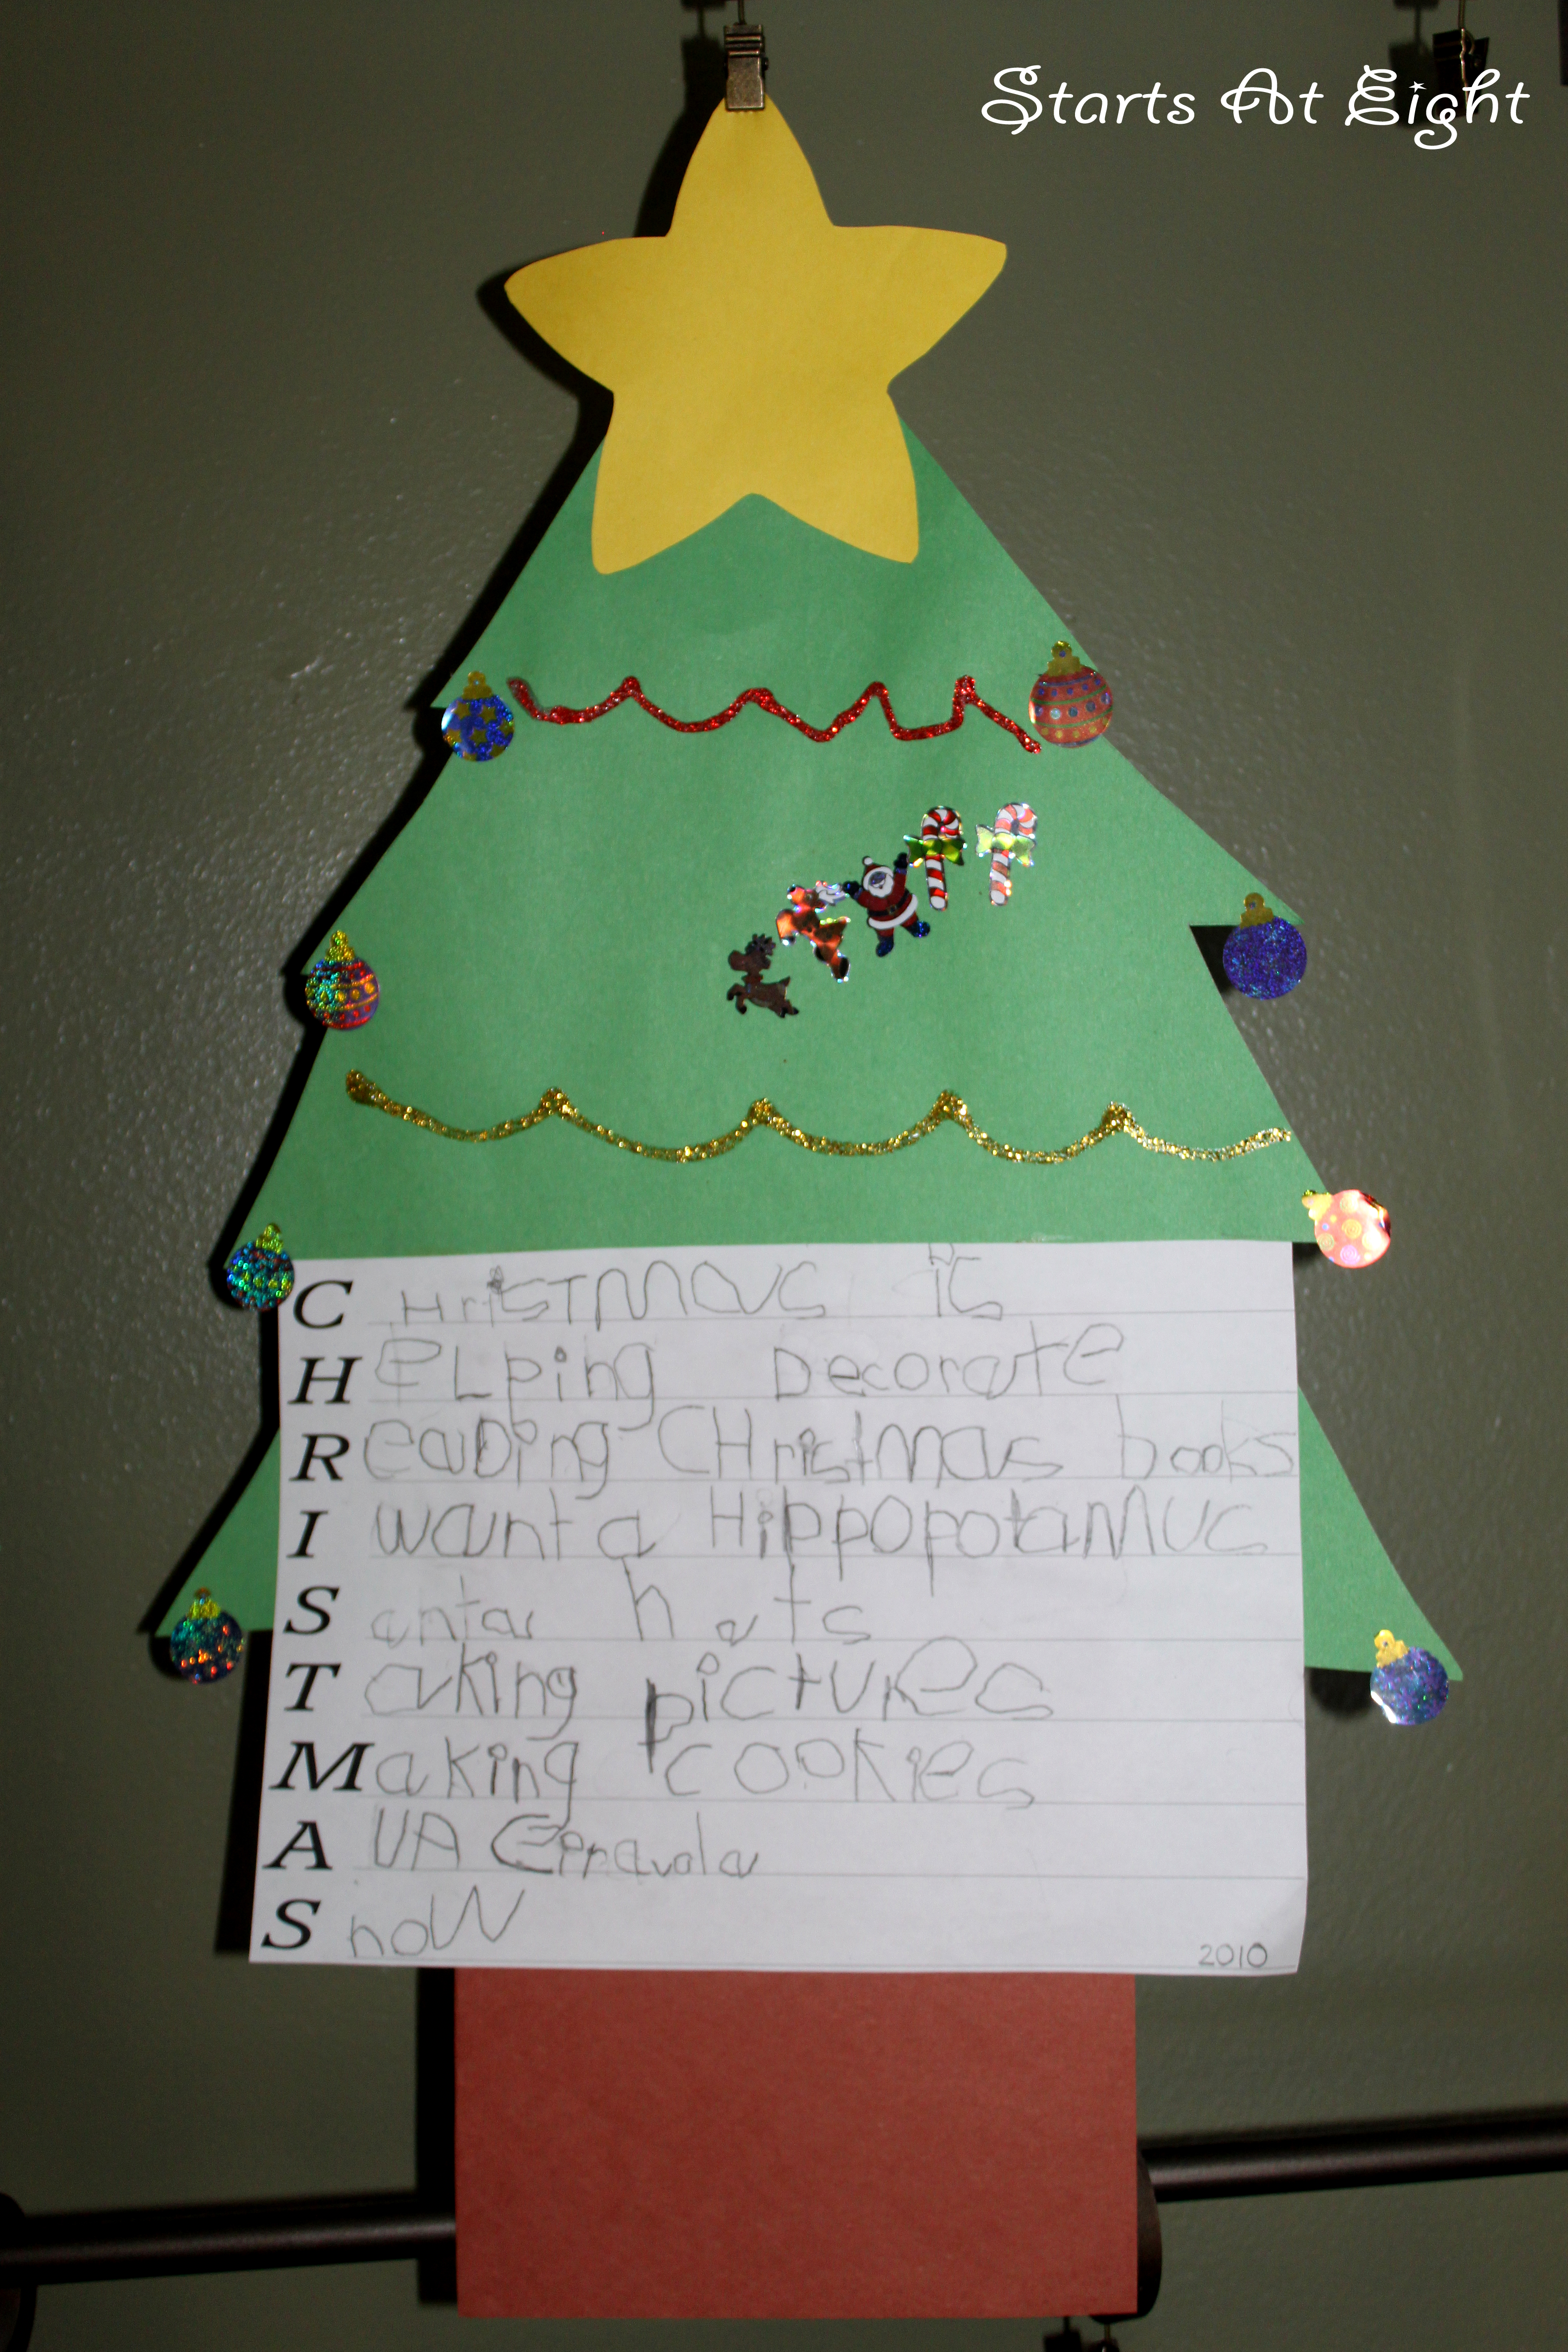 Starts At Eight
CHrisTMAS is
HeLping Decorate
ReaDing CHristmas books
I want a HippopotaMUS
Santa hats
Taking pictures
Making cookies
A UA
SnoW
2010